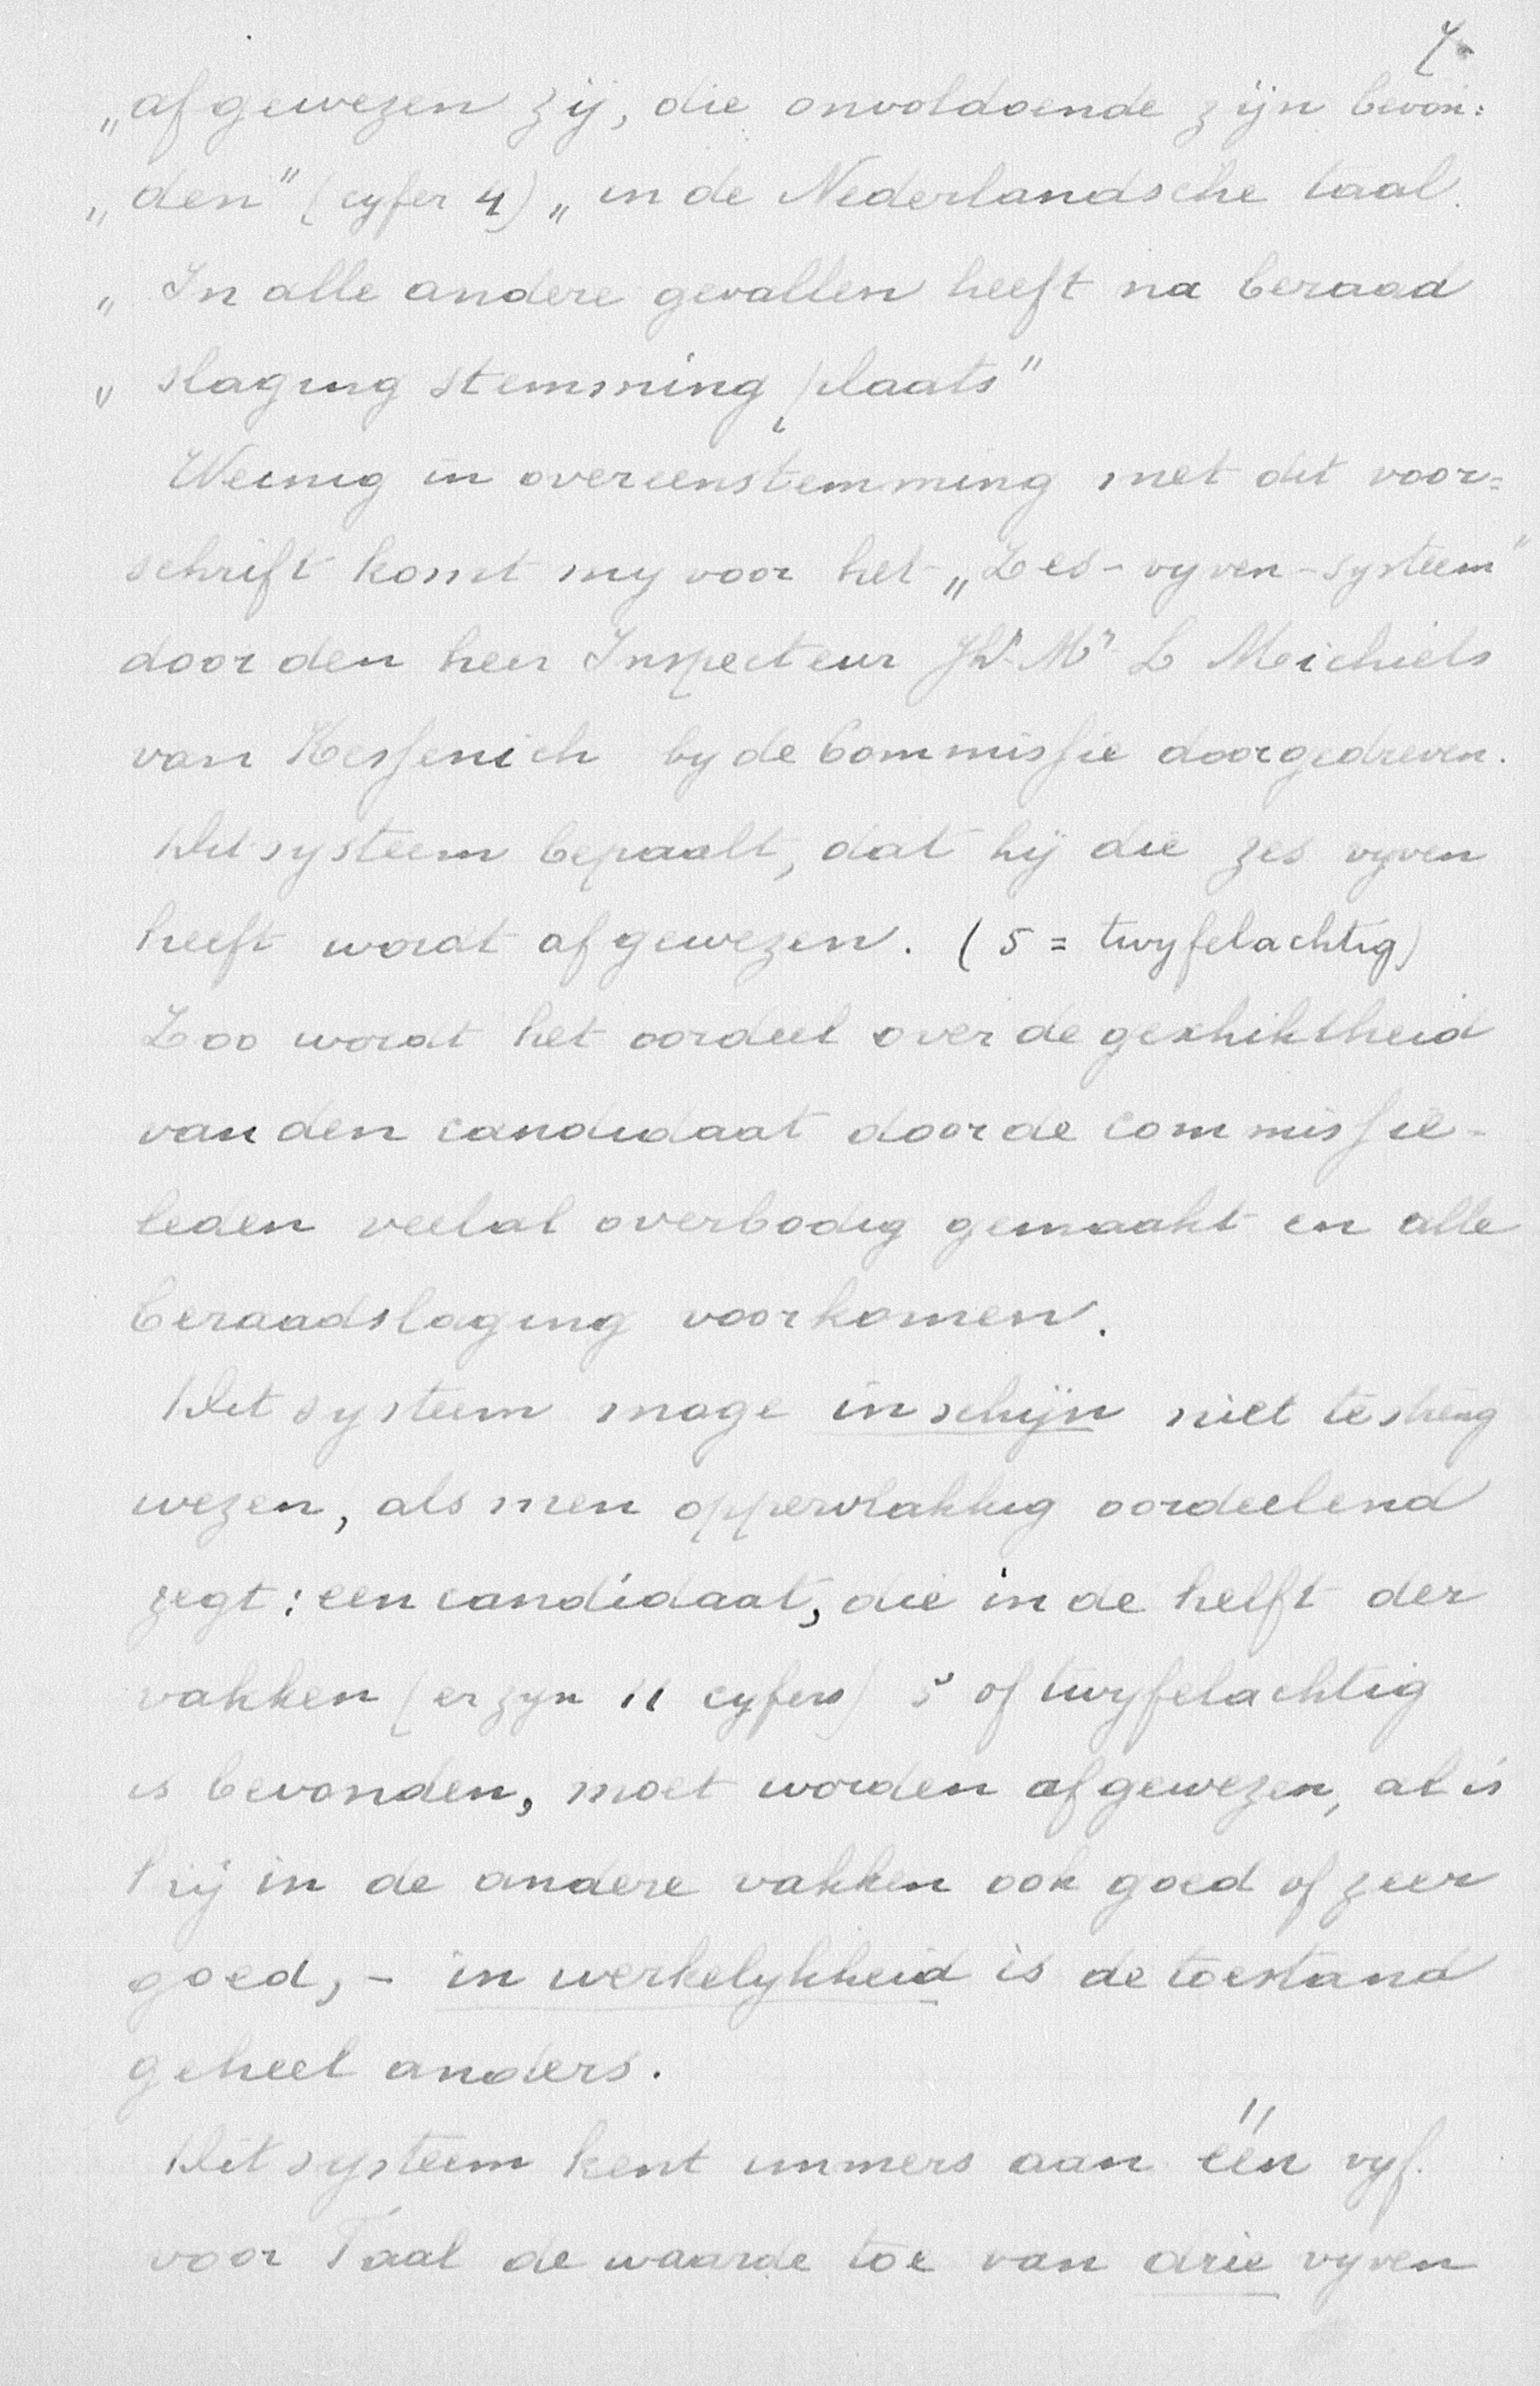 7.
„afgewezen zij, die onvoldoende zijn bevon:
„den" (cyfer 4) „in de Nederlandsche taal.
„ In alle andere gevallen heeft na beraad
„ slaging stemming plaats"
Weinig in overeenstemming met dit voor=
schrift komt my voor het „Zes-vyven-systeem"
door den heer Inspecteur Jhr Mr L Michiels
van Kessenich by de Commissie doorgedreven.
Dit systeem bepaalt, dat hij die zes vyven
heeft wordt afgewezen. (5 = twyfelachtig)
Zoo wordt het oordeel over de geschiktheid
van den candidaat door de commissie-
leden veelal overbodig gemaakt en alle
beraadslaging voorkomen.
Dit systeem moge in schijn niet te streng
wezen, als men oppervlakkig oordeelend
zegt: een candidaat, die in de helft der
vakken (er zyn 11 cyfers) 5 of twyfelachtig
is bevonden, moet worden afgewezen, al is
hij in de andere vakken ook goed of zeer
goed, - in werkelykheid is de toestand
geheel anders.
Dit systeem kent immers aan één vyf.
voor Taal de waarde toe van drie vyven